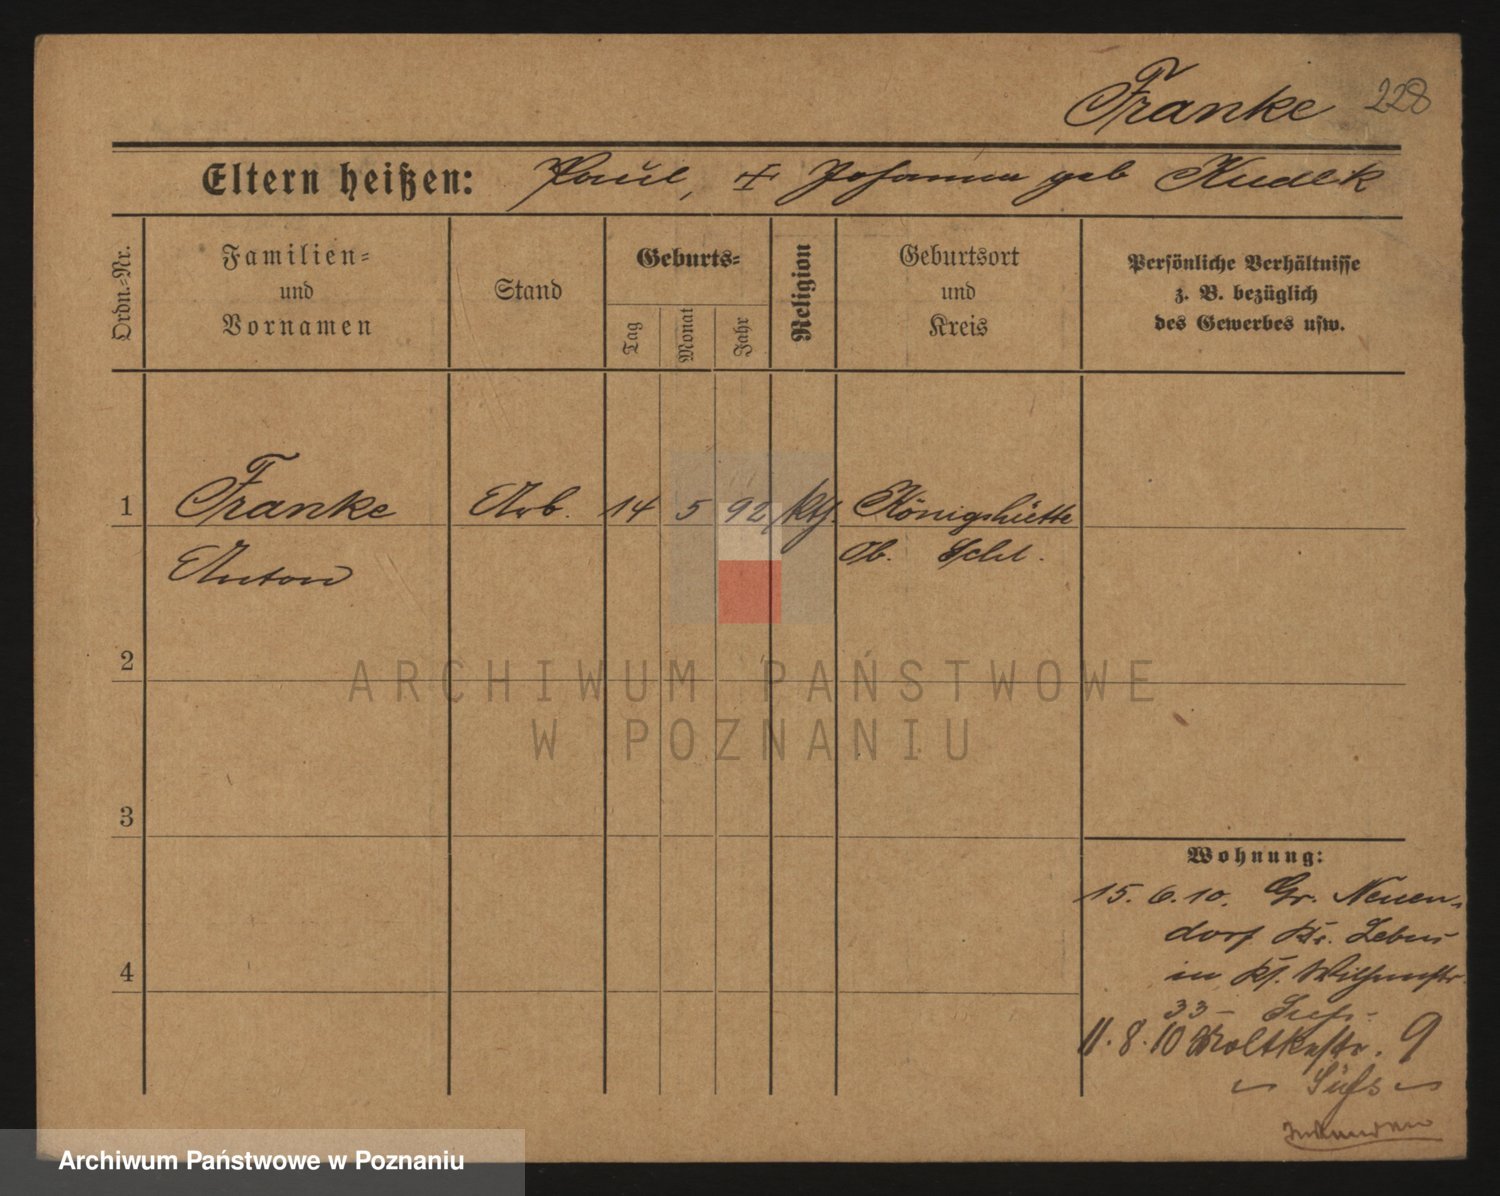 Franke 228
Eltern heißen: Paul, Johanna geb Kudlk
Ordn.-Nr.
Familien-
und
Vornamen
Stand
Geburts-
Tag
Monat
Jahr
Religion
Geburtsort
und
Kreis
Persönliche Verhältnisse
z. B. bezüglich
des Gewerbes usw.
1 Franke Arb. 14 5 92 kth. Königshütte
Anton Ob. Schl.
2
ARCHIWUM PAŃSTWOWE
W POZNANIU
3
Wohnung:
15. 6. 10. Gr. Neuen-
dorf Kr. Lebus
4
in
33
11. 8. 10 Moltkestr. 9
Archiwum Państwowe w Poznaniu